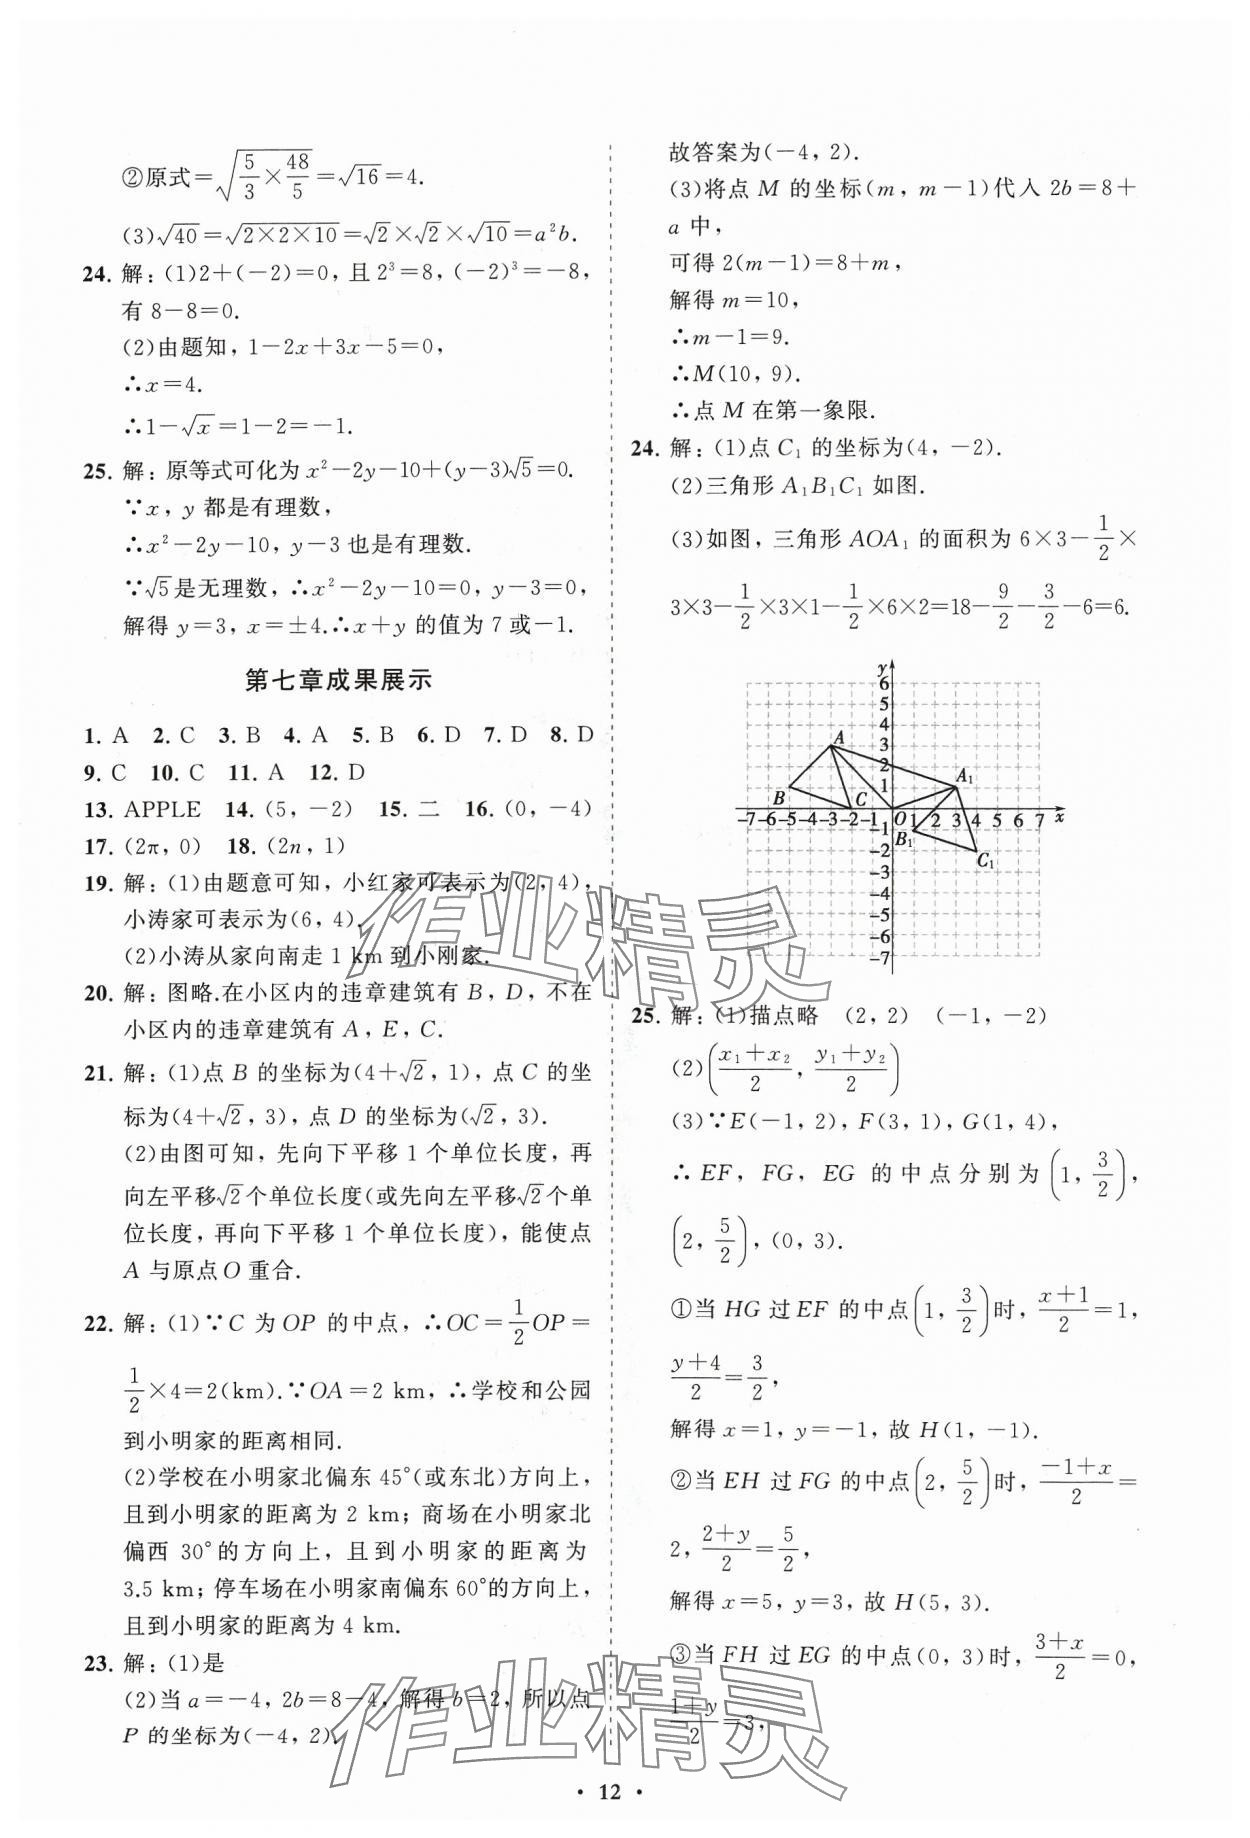 ②原式=√(5/3×48/5)=√16=4.
(3)√40=√(2×2×10)=√2×√2×√10=a²b.
24. 解:(1)2+(-2)=0,且2³=8,(-2)³=-8,
有8-8=0.
(2)由题知,1-2x+3x-5=0,
∴x=4.
∴1-√x=1-2=-1.
25. 解:原等式可化为x²-2y-10+(y-3)√5=0.
∵x,y都是有理数,
∴x²-2y-10,y-3也是有理数.
∵√5是无理数,∴x²-2y-10=0,y-3=0,
解得y=3,x=±4.∴x+y的值为7或-1.
第七章成果展示
1. A 2. C 3. B 4. A 5. B 6. D 7. D 8. D
9. C 10. C 11. A 12. D
13. APPLE 14. (5,-2) 15. 二 16. (0,-4)
17. (2π,0) 18. (2n,1)
19. 解:(1)由题意可知,小红家可表示为(2,4),
小涛家可表示为(6,4).
(2)小涛从家向南走1 km到小刚家.
20. 解:图略.在小区内的违章建筑有B,D,不在
小区内的违章建筑有A,E,C.
21. 解:(1)点B的坐标为(4+√2,1),点C的坐
标为(4+√2,3),点D的坐标为(√2,3).
(2)由图可知,先向下平移1个单位长度,再
向左平移√2个单位长度(或先向左平移√2个单
位长度,再向下平移1个单位长度),能使点
A与原点O重合.
22. 解:(1)∵C为OP的中点,∴OC=1/2OP=
1/2×4=2(km).∵OA=2 km,∴学校和公园
到小明家的距离相同.
(2)学校在小明家北偏东45°(或东北)方向上,
且到小明家的距离为2 km;商场在小明家北
偏西30°的方向上,且到小明家的距离为
3.5 km;停车场在小明家南偏东60°的方向上,
且到小明家的距离为4 km.
23. 解:(1)是
(2)当a=-4,2b=8-4,解得b=2,所以点
P的坐标为(-4,2),
故答案为(-4,2).
(3)将点M的坐标(m,m-1)代入2b=8+
a中,
可得2(m-1)=8+m,
解得m=10,
∴m-1=9.
∴M(10,9).
∴点M在第一象限.
24. 解:(1)点C₁的坐标为(4,-2).
(2)三角形A₁B₁C₁如图.
(3)如图,三角形AOA₁的面积为6×3-1/2×
3×3-1/2×3×1-1/2×6×2=18-9/2-3/2-6=6.
y
6
5
4
A 3
2
1 A₁
B C
-7-6-5-4-3-2-1 O 1 2 3 4 5 6 7 x
-1 B₁
-2 C₁
-3
-4
-5
-6
-7
25. 解:(1)描点略 (2,2) (-1,-2)
(2)((x₁+x₂)/2,(y₁+y₂)/2)
(3)∵E(-1,2),F(3,1),G(1,4),
∴EF,FG,EG的中点分别为(1,3/2),
(2,5/2),(0,3).
①当HG过EF的中点(1,3/2)时,(x+1)/2=1,
(y+4)/2=3/2,
解得x=1,y=-1,故H(1,-1).
②当EH过FG的中点(2,5/2)时,(-1+x)/2=
2,(2+y)/2=5/2,
解得x=5,y=3,故H(5,3).
③当FH过EG的中点(0,3)时,(3+x)/2=0,
(1+y)/2=3,
作业精灵
作业精灵
· 12 ·